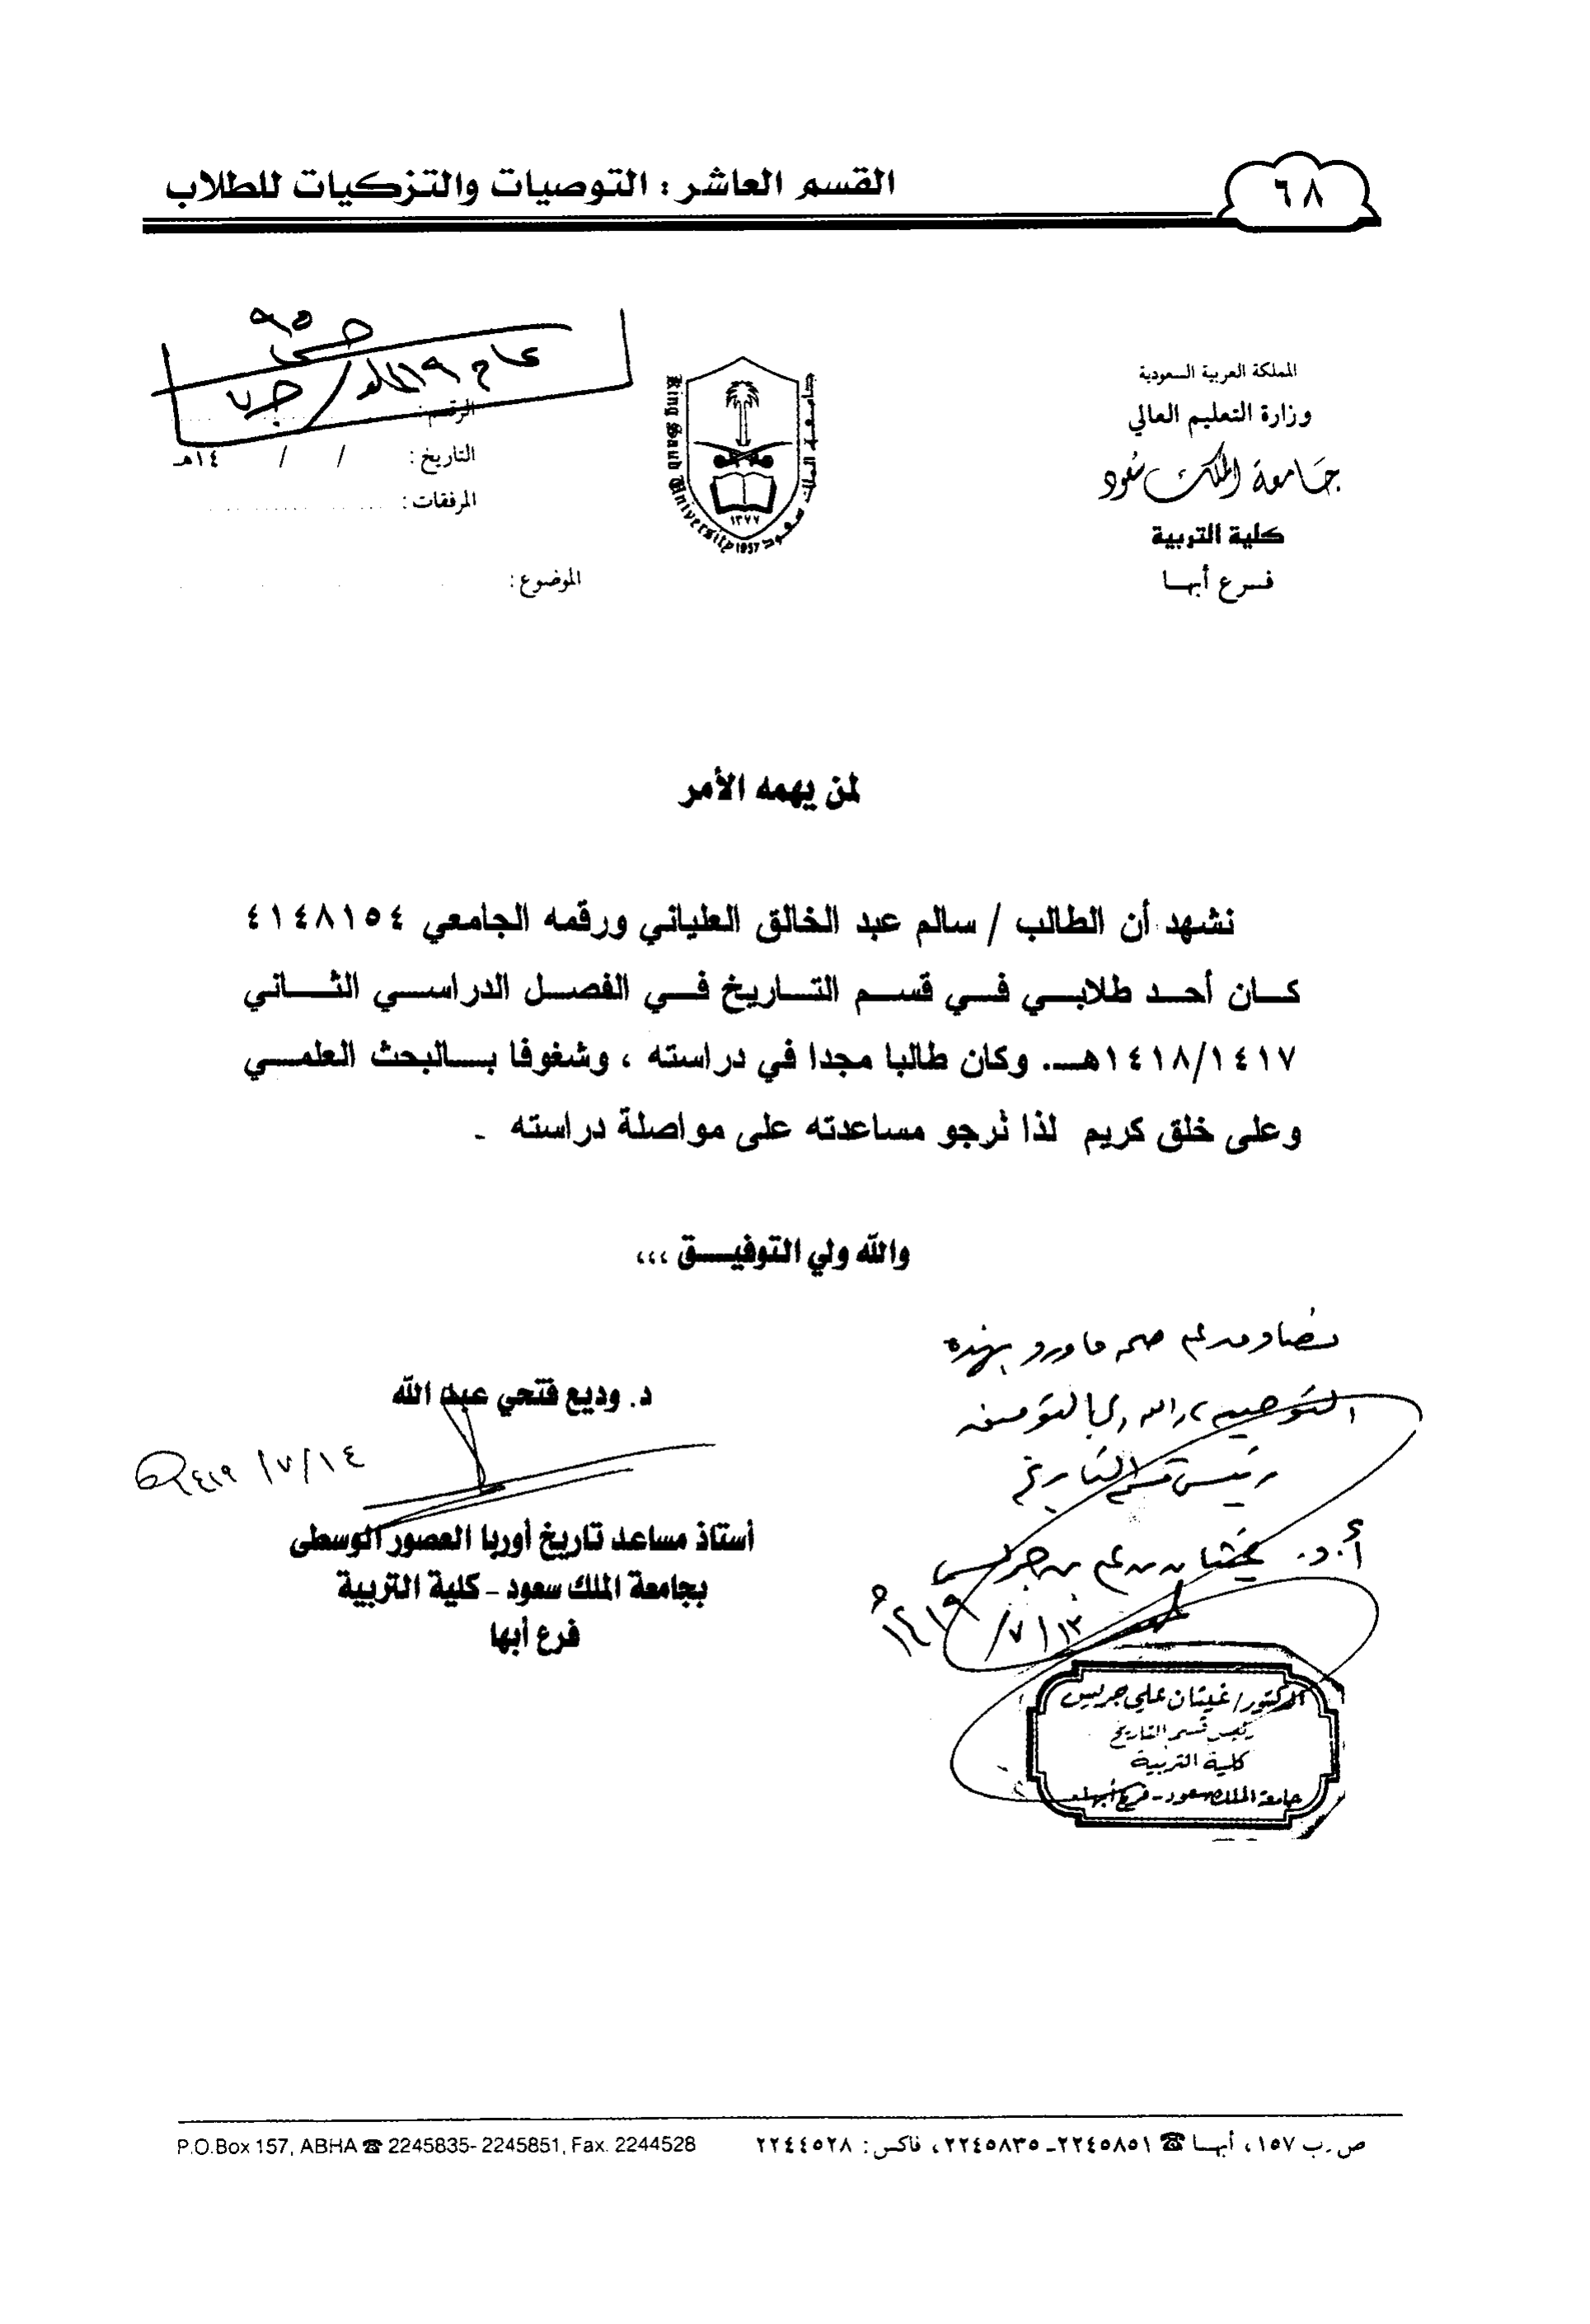 ٦٨
القسم العاشر : التوصيات والتزكيات للطلاب
المملكة العربية السعودية
وزارة التعليم العالي
جامعة الملك سعود
كلية التربية
فرع أبها
جامعة الملك سعود
King Saud University
١٣٧٧
1957
عام
الرقم :
التاريخ : / / ١٤هـ
المرفقات :
الموضوع :
لمن يهمه الأمر
نشهد أن الطالب / سالم عبد الخالق العلياني ورقمه الجامعي ٤١٤٨١٥٤
كان أحد طلابي في قسم التاريخ في الفصل الدراسي الثاني
١٤١٨/١٤١٧هـ. وكان طالبا مجدا في دراسته ، وشغوفا بالبحث العلمي
وعلى خلق كريم لذا نرجو مساعدته على مواصلة دراسته -
والله ولي التوفيق ،،،
د. وديع فتحي عبد الله
١٤/٧/١٤١٩
أستاذ مساعد تاريخ أوربا العصور الوسطى
بجامعة الملك سعود - كلية التربية
فرع أبها
صحة ما ورد بهذه
التوصية والله ولي التوفيق
رئيس قسم التاريخ
أ.د. غيثان بن علي بن جريس
١٣/٧/١٤١٩هـ
الدكتور/ غيثان علي جريس
رئيس قسم التاريخ
كلية التربية
جامعة الملك سعود - فرع أبها
ص.ب ١٥٧، أبها ☎ ٢٢٤٥٨٥١-٢٢٤٥٨٣٥، فاكس : ٢٢٤٤٥٢٨
P.O.Box 157, ABHA ☎ 2245835-2245851, Fax. 2244528